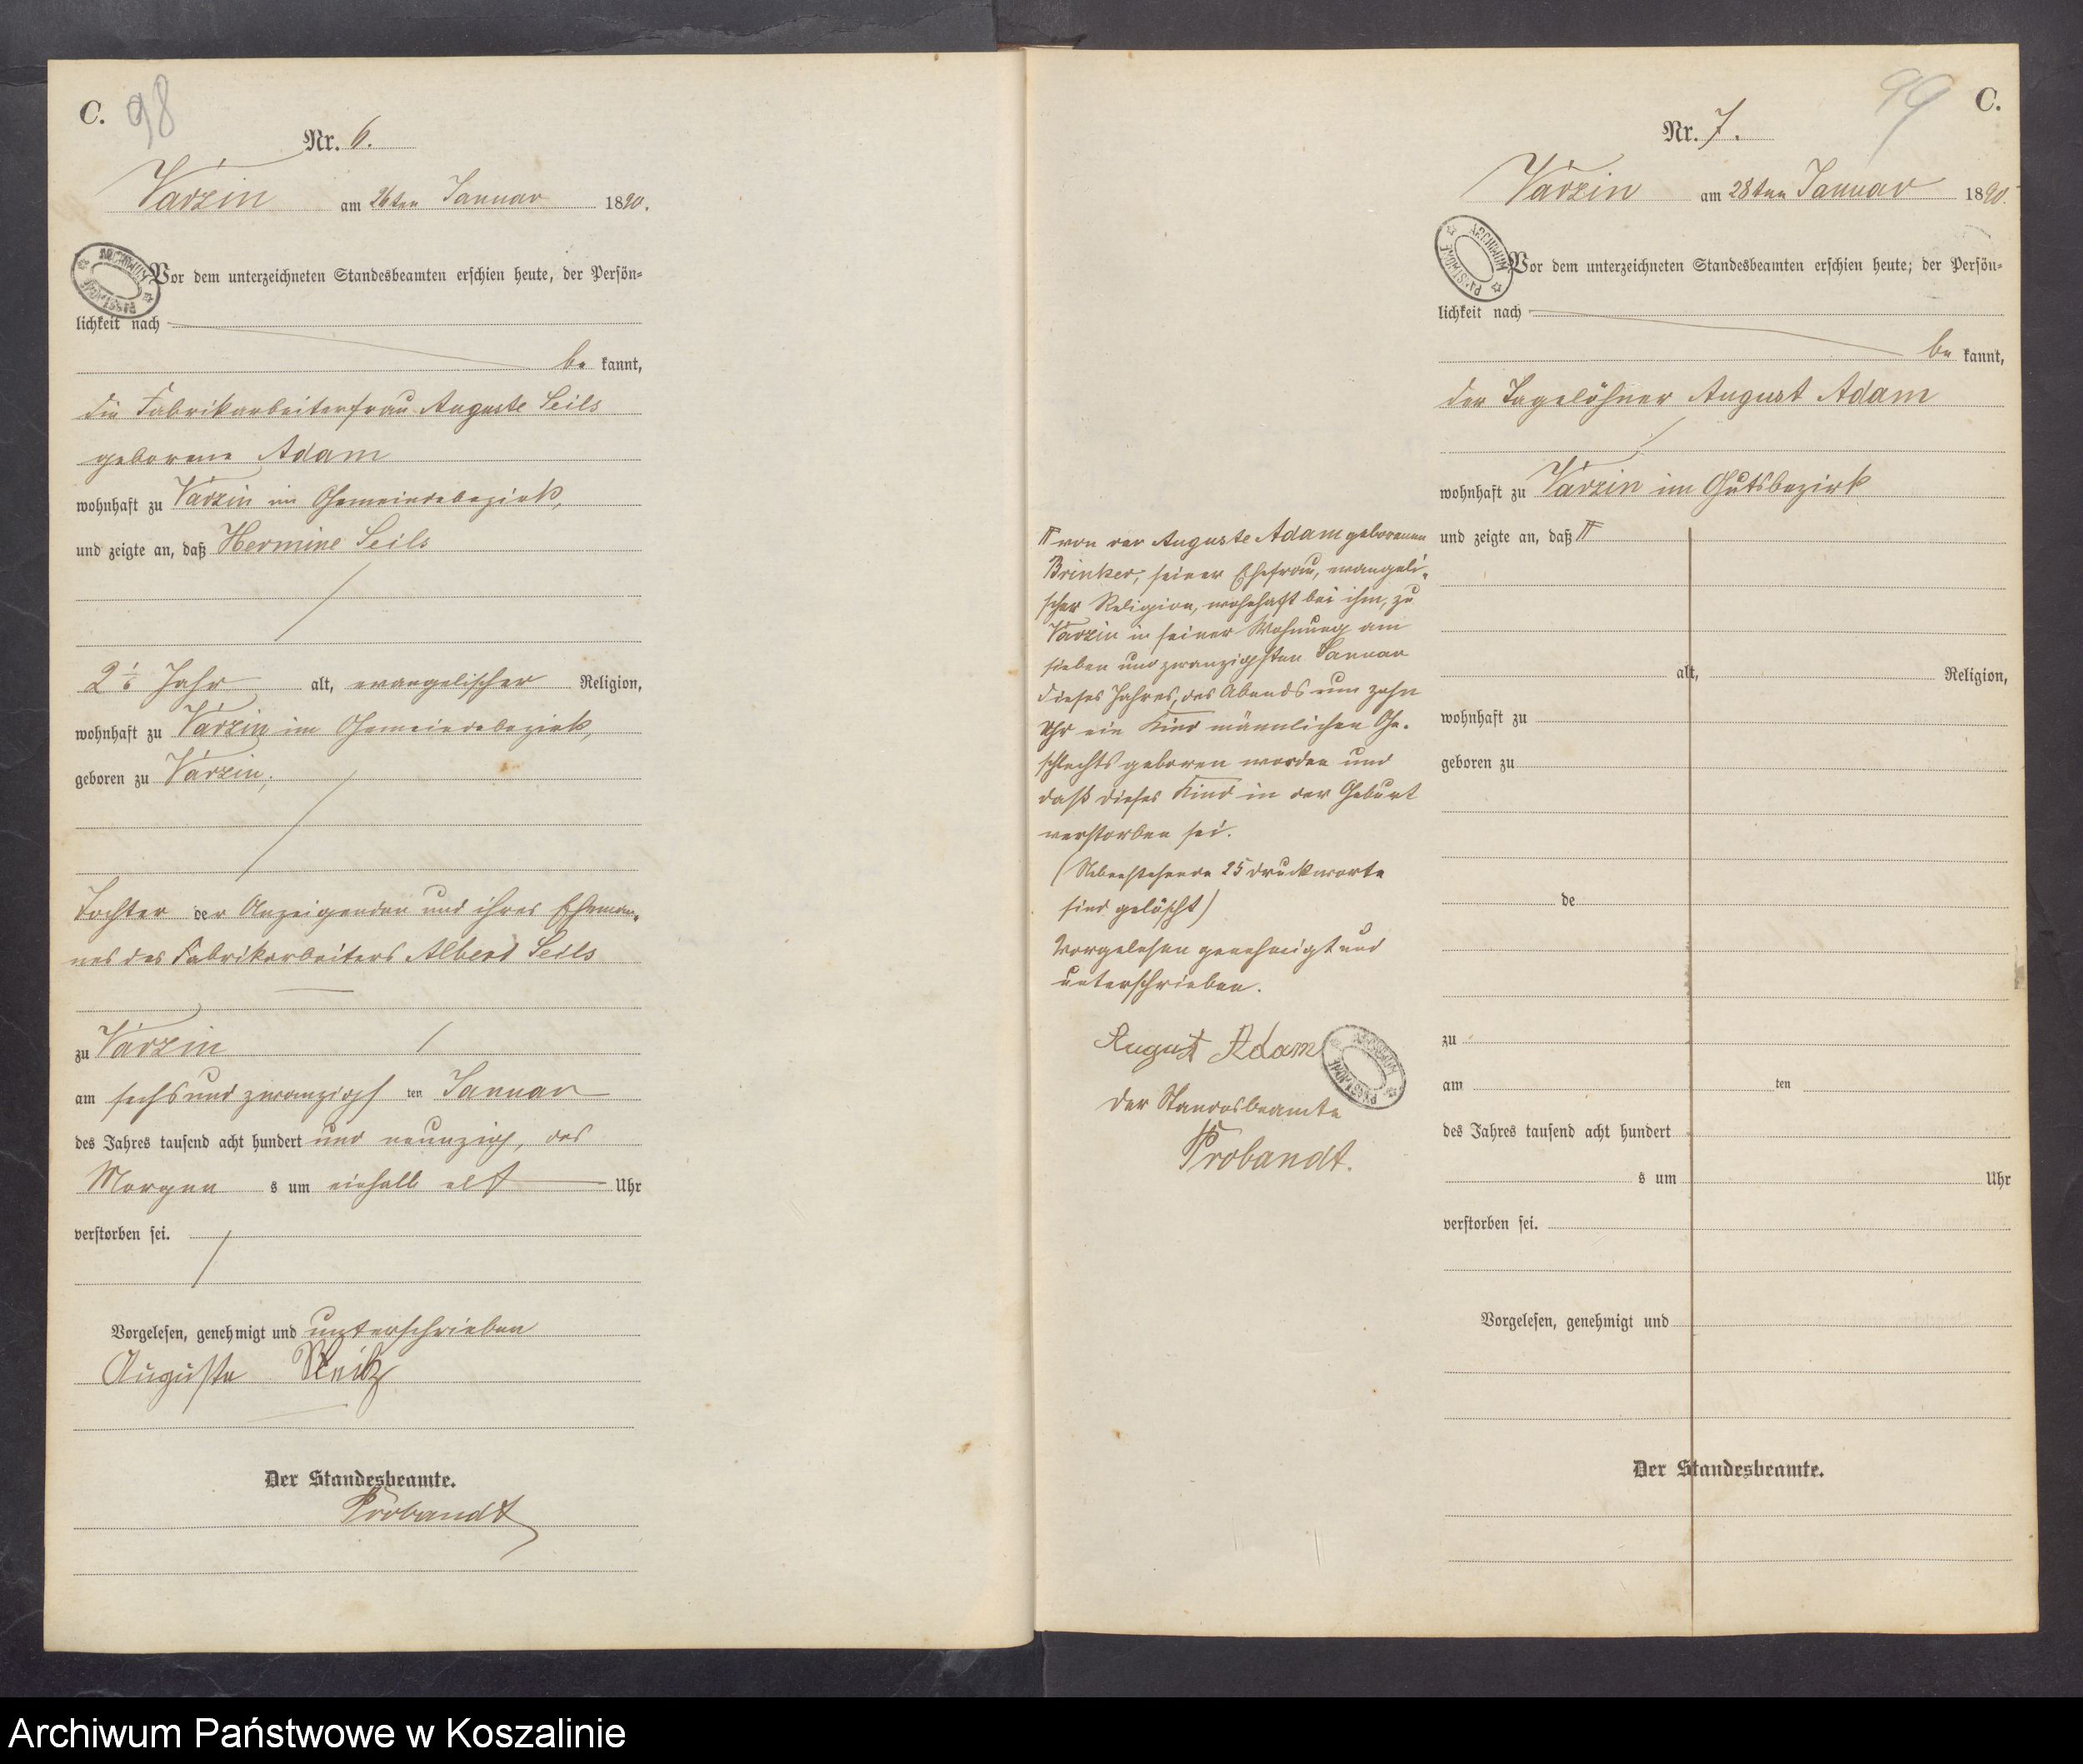 C. 98
Nr. 6.
Varzin am 26ten Januar 1890.
Vor dem unterzeichneten Standesbeamten erschien heute, der Persön=
lichkeit nach
be kannt,
die Fabrikarbeiterfrau Auguste Seils
geborene Adam
wohnhaft zu Varzin im Gemeindebezirk,
und zeigte an, daß Hermine Seils
2 Jahr alt, evangelischer Religion,
wohnhaft zu Varzin im Gemeindebezirk,
geboren zu Varzin,
Tochter der Anzeigenden und ihres Eheman=
nes des Fabrikarbeiters Albert Seils
zu Varzin
am sechsundzwanzigs ten Januar
des Jahres tausend acht hundert und neunzig, des
Morgen s um einhalb elf Uhr
verstorben sei.
Vorgelesen, genehmigt und unterschrieben
Auguste
Der Standesbeamte.
Probandt
99 C.
Nr. 7.
Varzin am 28ten Januar 1890.
Vor dem unterzeichneten Standesbeamten erschien heute, der Persön=
lichkeit nach
be kannt,
der Tagelöhner August Adam
wohnhaft zu Varzin im Gutsbezirk
und zeigte an, daß
alt, Religion,
wohnhaft zu
geboren zu
de
zu
am ten
des Jahres tausend acht hundert
s um Uhr
verstorben sei.
Vorgelesen, genehmigt und
Der Standesbeamte.
von der Auguste Adam geborenen
Brinker, seiner Ehefrau, evangeli=
scher Religion, wohnhaft bei ihm, zu
Varzin in seiner Wohnung am
sieben und zwanzigsten Januar
dieses Jahres, des Abends um zehn
Uhr ein Kind männlichen Ge=
schlechts geboren worden und
daß dieses Kind in der Geburt
verstorben sei.
(Nebenstehende 25 Druckworte
sind gelöscht)
Vorgelesen genehmigt und
unterschrieben.
August Adam
Der Standesbeamte
Probandt.
Archiwum Państwowe w Koszalinie